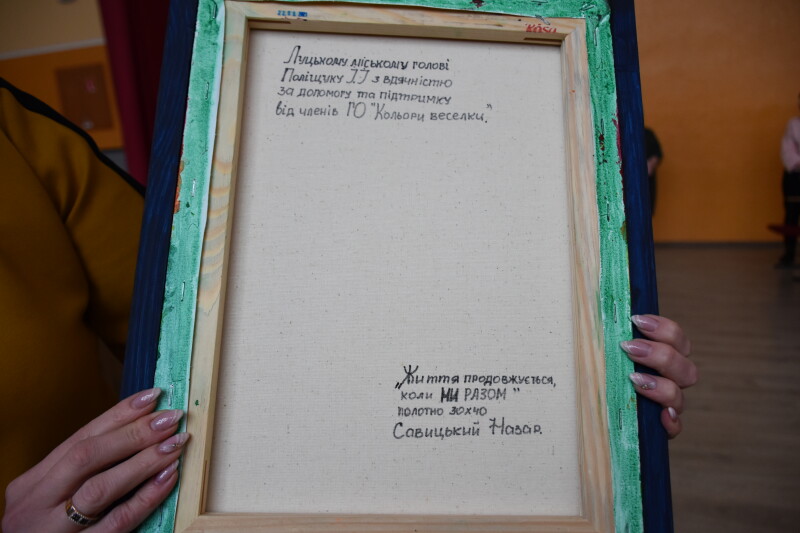 Луцькому міському голові
Поліщуку І.І з вдячністю
за допомогу та підтримку
від членів ГО "Кольори веселки."
„Життя продовжується,
коли МИ РАЗОМ"
полотно зохчо
Савицький Назар.